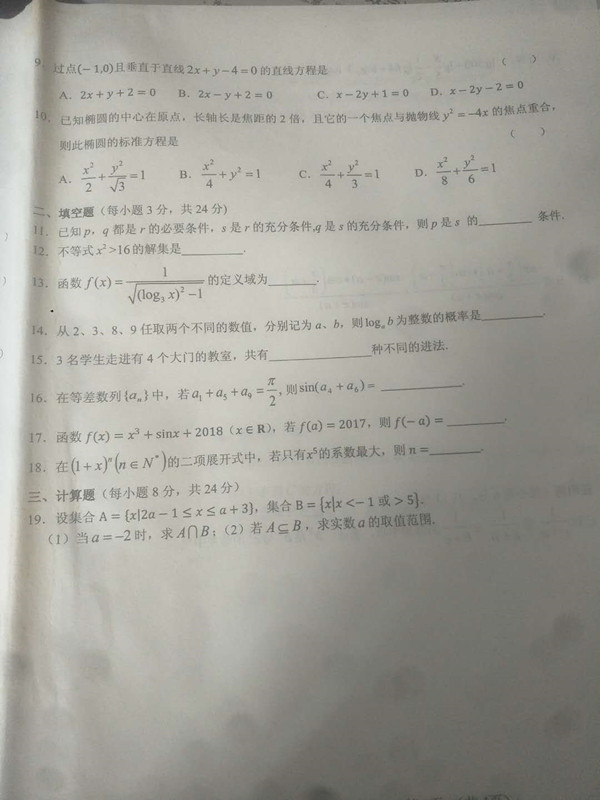 9. 过点(− 1,0)且垂直于直线 2x + y − 4 = 0 的直线方程是 （ ）
A. 2x + y + 2 = 0 B. 2x − y + 2 = 0 C. x − 2y + 1 = 0 D. x − 2y − 2 = 0
10. 已知椭圆的中心在原点，长轴长是焦距的 2 倍，且它的一个焦点与抛物线 y² = −4x 的焦点重合，
则此椭圆的标准方程是 （ ）
A. x²/2 + y²/√3 = 1 B. x²/4 + y² = 1 C. x²/4 + y²/3 = 1 D. x²/8 + y²/6 = 1
二、填空题（每小题 3 分，共 24 分）
11. 已知 p，q 都是 r 的必要条件，s 是 r 的充分条件,q 是 s 的充分条件，则 p 是 s 的________ 条件.
12. 不等式 x² >16 的解集是________.
13. 函数 f(x) = 1/√((log₃ x)² − 1) 的定义域为________.
14. 从 2、3、8、9 任取两个不同的数值，分别记为 a、b，则 logₐ b 为整数的概率是________.
15. 3 名学生走进有 4 个大门的教室，共有________种不同的进法.
16. 在等差数列 {aₙ} 中，若 a₁ + a₅ + a₉ = π/2, 则 sin(a₄ + a₆) = ________.
17. 函数 f(x) = x³ + sinx + 2018（x ∈ R），若 f(a) = 2017，则 f(− a) = ________.
18. 在 (1 + x)ⁿ (n ∈ N*) 的二项展开式中，若只有x⁵的系数最大，则 n =________.
三、计算题（每小题 8 分，共 24 分）
19. 设集合 A = {x|2a − 1 ≤ x ≤ a + 3}，集合 B = {x|x < − 1 或 > 5}.
（1）当 a = −2 时，求 A⋂B；（2）若 A ⊆ B，求实数 a 的取值范围.